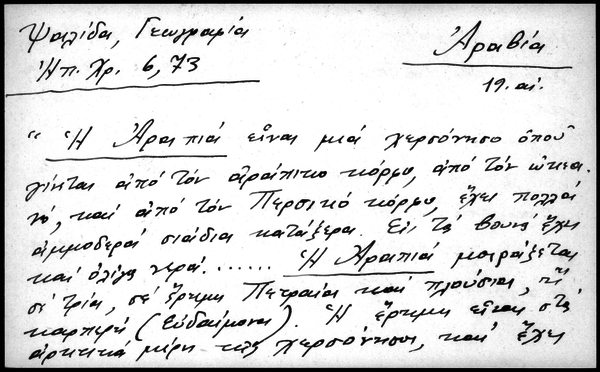 Ψαλίδα, Γεωγραφία
Ἠπ. Χρ. 6, 73
Ἀραβία
19. αἰ.
"Ἡ Ἀραπιά εἶναι μιά χερσόνησο ὁποῦ
γίνεται ἀπό τόν ἀράπικο κόρφο, ἀπό τόν ὠκεα-
νό, καί ἀπό τόν Περσικό κόρφο, ἔχει πολλά
ἀμμοδερά σιάδια κατάξερα. Εἰς τά βουνά ἔχει
καί ὀλίγα νερά. ...... Ἡ Ἀραπιά μοιράζεται
σέ τρία, σέ ἔρημη Πετραία καί πλούσια, ἤ
καρπερή (Εὐδαίμονα). Ἡ ἔρημη εἶναι στά
ἀρκτικά μέρη τῆς χερσόνησος, καί ἔχει